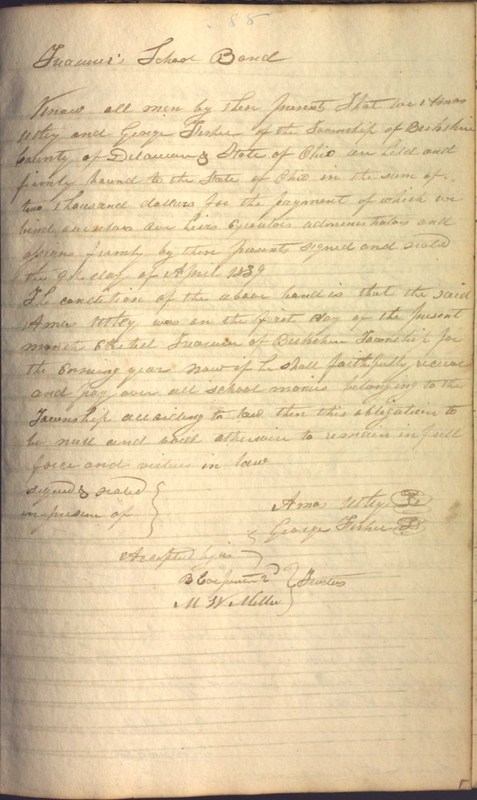 88
Treasurer's School Bond
Know all men by these presents That we Amos
Utley and George Fisher of the Township of Berkshire
County of Delaware & State of Ohio are held and
firmly bound to the State of Ohio in the sum of
two thousand dollars for the payment of which we
bind ourselves our heirs Executors administrators and
assigns firmly by these presents signed and sealed
this 9th day of April 1839
The condition of the above bond is that the said
Amos Utley was on the first day of the present
month Elected Treasurer of Berkshire Township for
the Ensuing year now if he shall faithfully receive
and pay over all school monies belonging to the
Township according to law then this obligation to
be null and void otherwise to remain in full
force and virtue in law
signed & sealed
in presence of
Amos Utley
George Fisher
Accepted by us
B Carpenter 2d Trustees
M W Miller